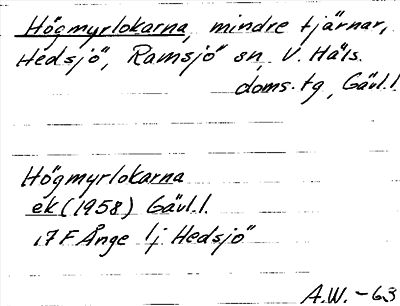 Högmyrlokarna, mindre tjärnar,
Hedsjö, Ramsjö sn, V. Häls.
doms.tg, Gävl.l.
Högmyrlokarna
ek (1958) Gävl.l.
17F Ånge 1j Hedsjö
A.W. -63